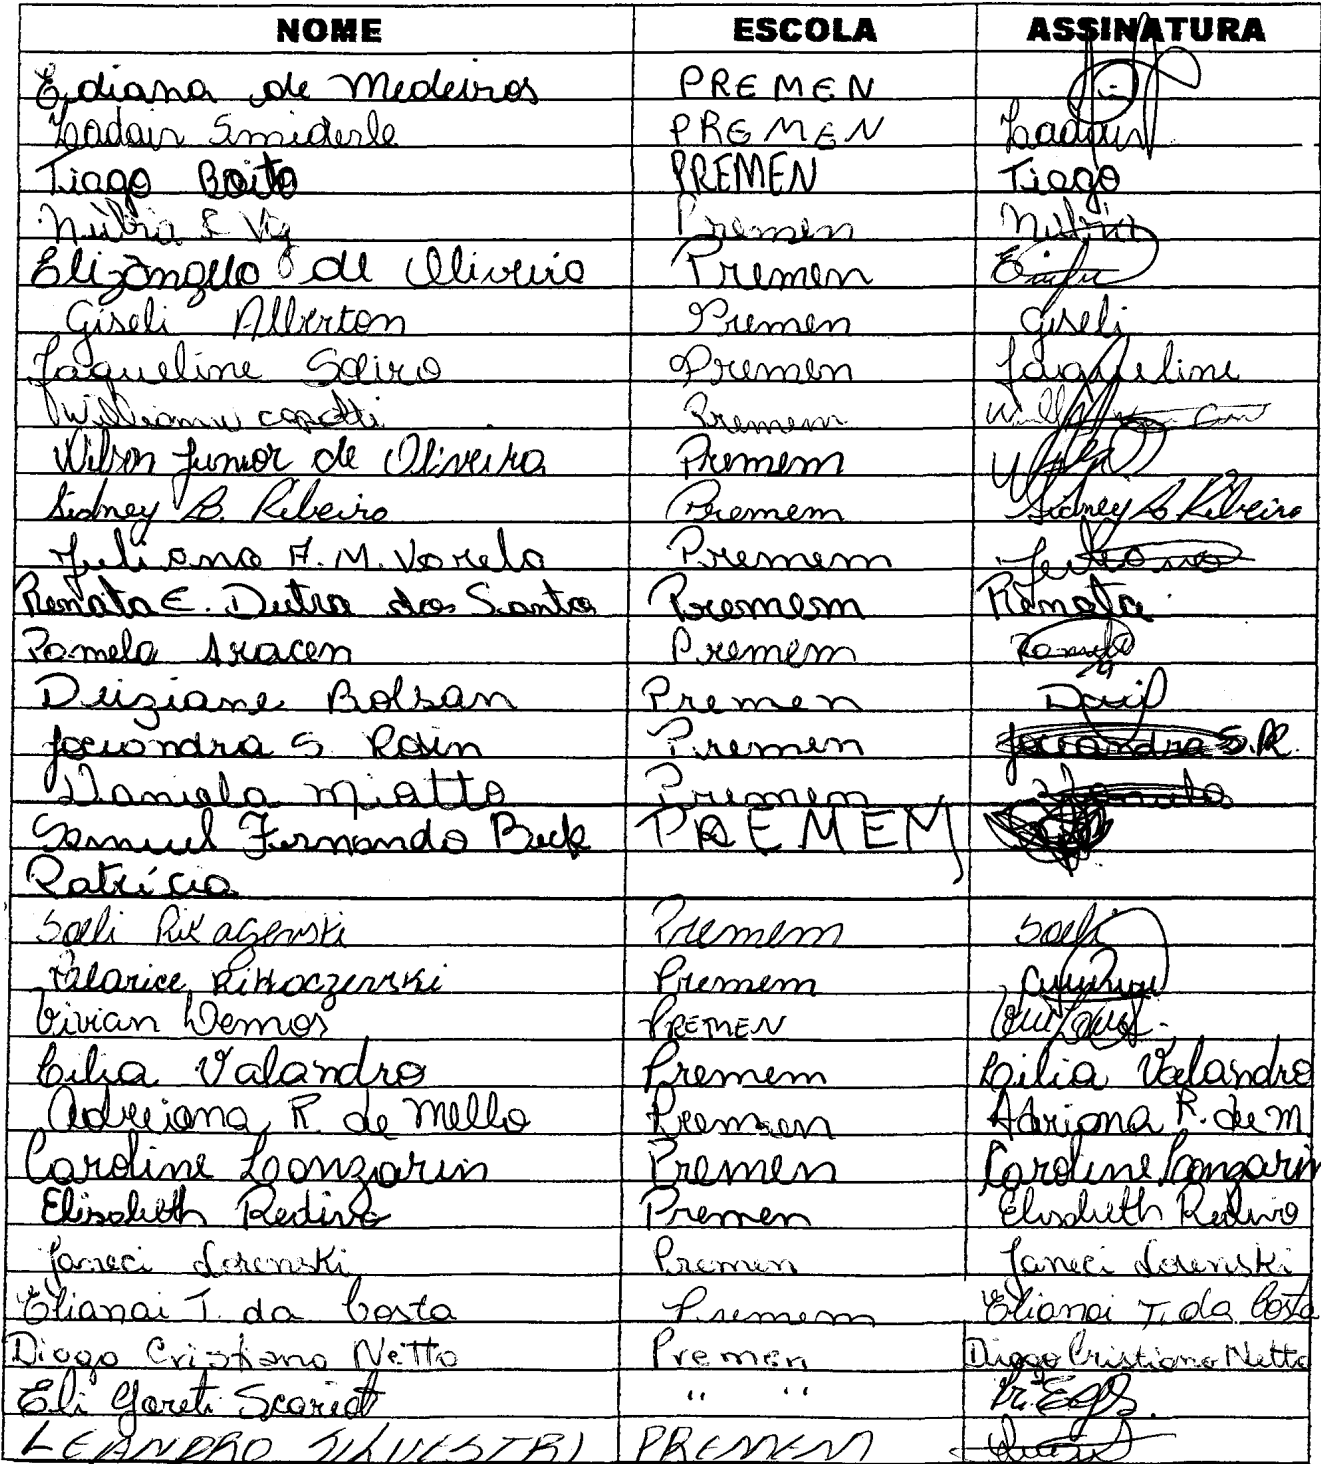 NOME ESCOLA ASSINATURA
Ediana de Medeiros PREMEN
Ladair Smiderle PREMEN Ladair
Tiago Boito PREMEN Tiago
Núbia Premen Núbia
Elizângela de Oliveira Premen
Giseli Alberton Premen Giseli
Jaqueline Premen Jaqueline
Premem
Wilson Junior de Oliveira Premem
Sidney B. Ribeiro Premem Sidney B Ribeiro
Juliana A. M. Varela Premem Juliana
Renata E. Dutra dos Santos Premem Renata
Pamela Aracen Premem Pamela
Deiziane Bolsan Premen
Jociandra S. Rosin Premen Jociandra S.R.
Daniela Miatto Premem Daniela
Samuel Fernando Beck PREMEM
Patrícia
Soeli Premem Soeli
Clarice Rikaczenski Premem
Vivian Demos PREMEN
Cilia Valandro Premem Cilia Valandro
Adriana R. de Mello Premen Adriana R. de M.
Caroline Lonzarin Premen Caroline Lonzarin
Elisabeth Redivo Premen Elisabeth Redivo
Janeci Lorenski Premen Janeci Lorenski
Elianai T. da Costa Premem Elianai T. da Costa
Diogo Cristiano Netto Premen Diogo Cristiano Netto
Eli Goreti Scariot " "
LEANDRO SILVESTRI PREMEM